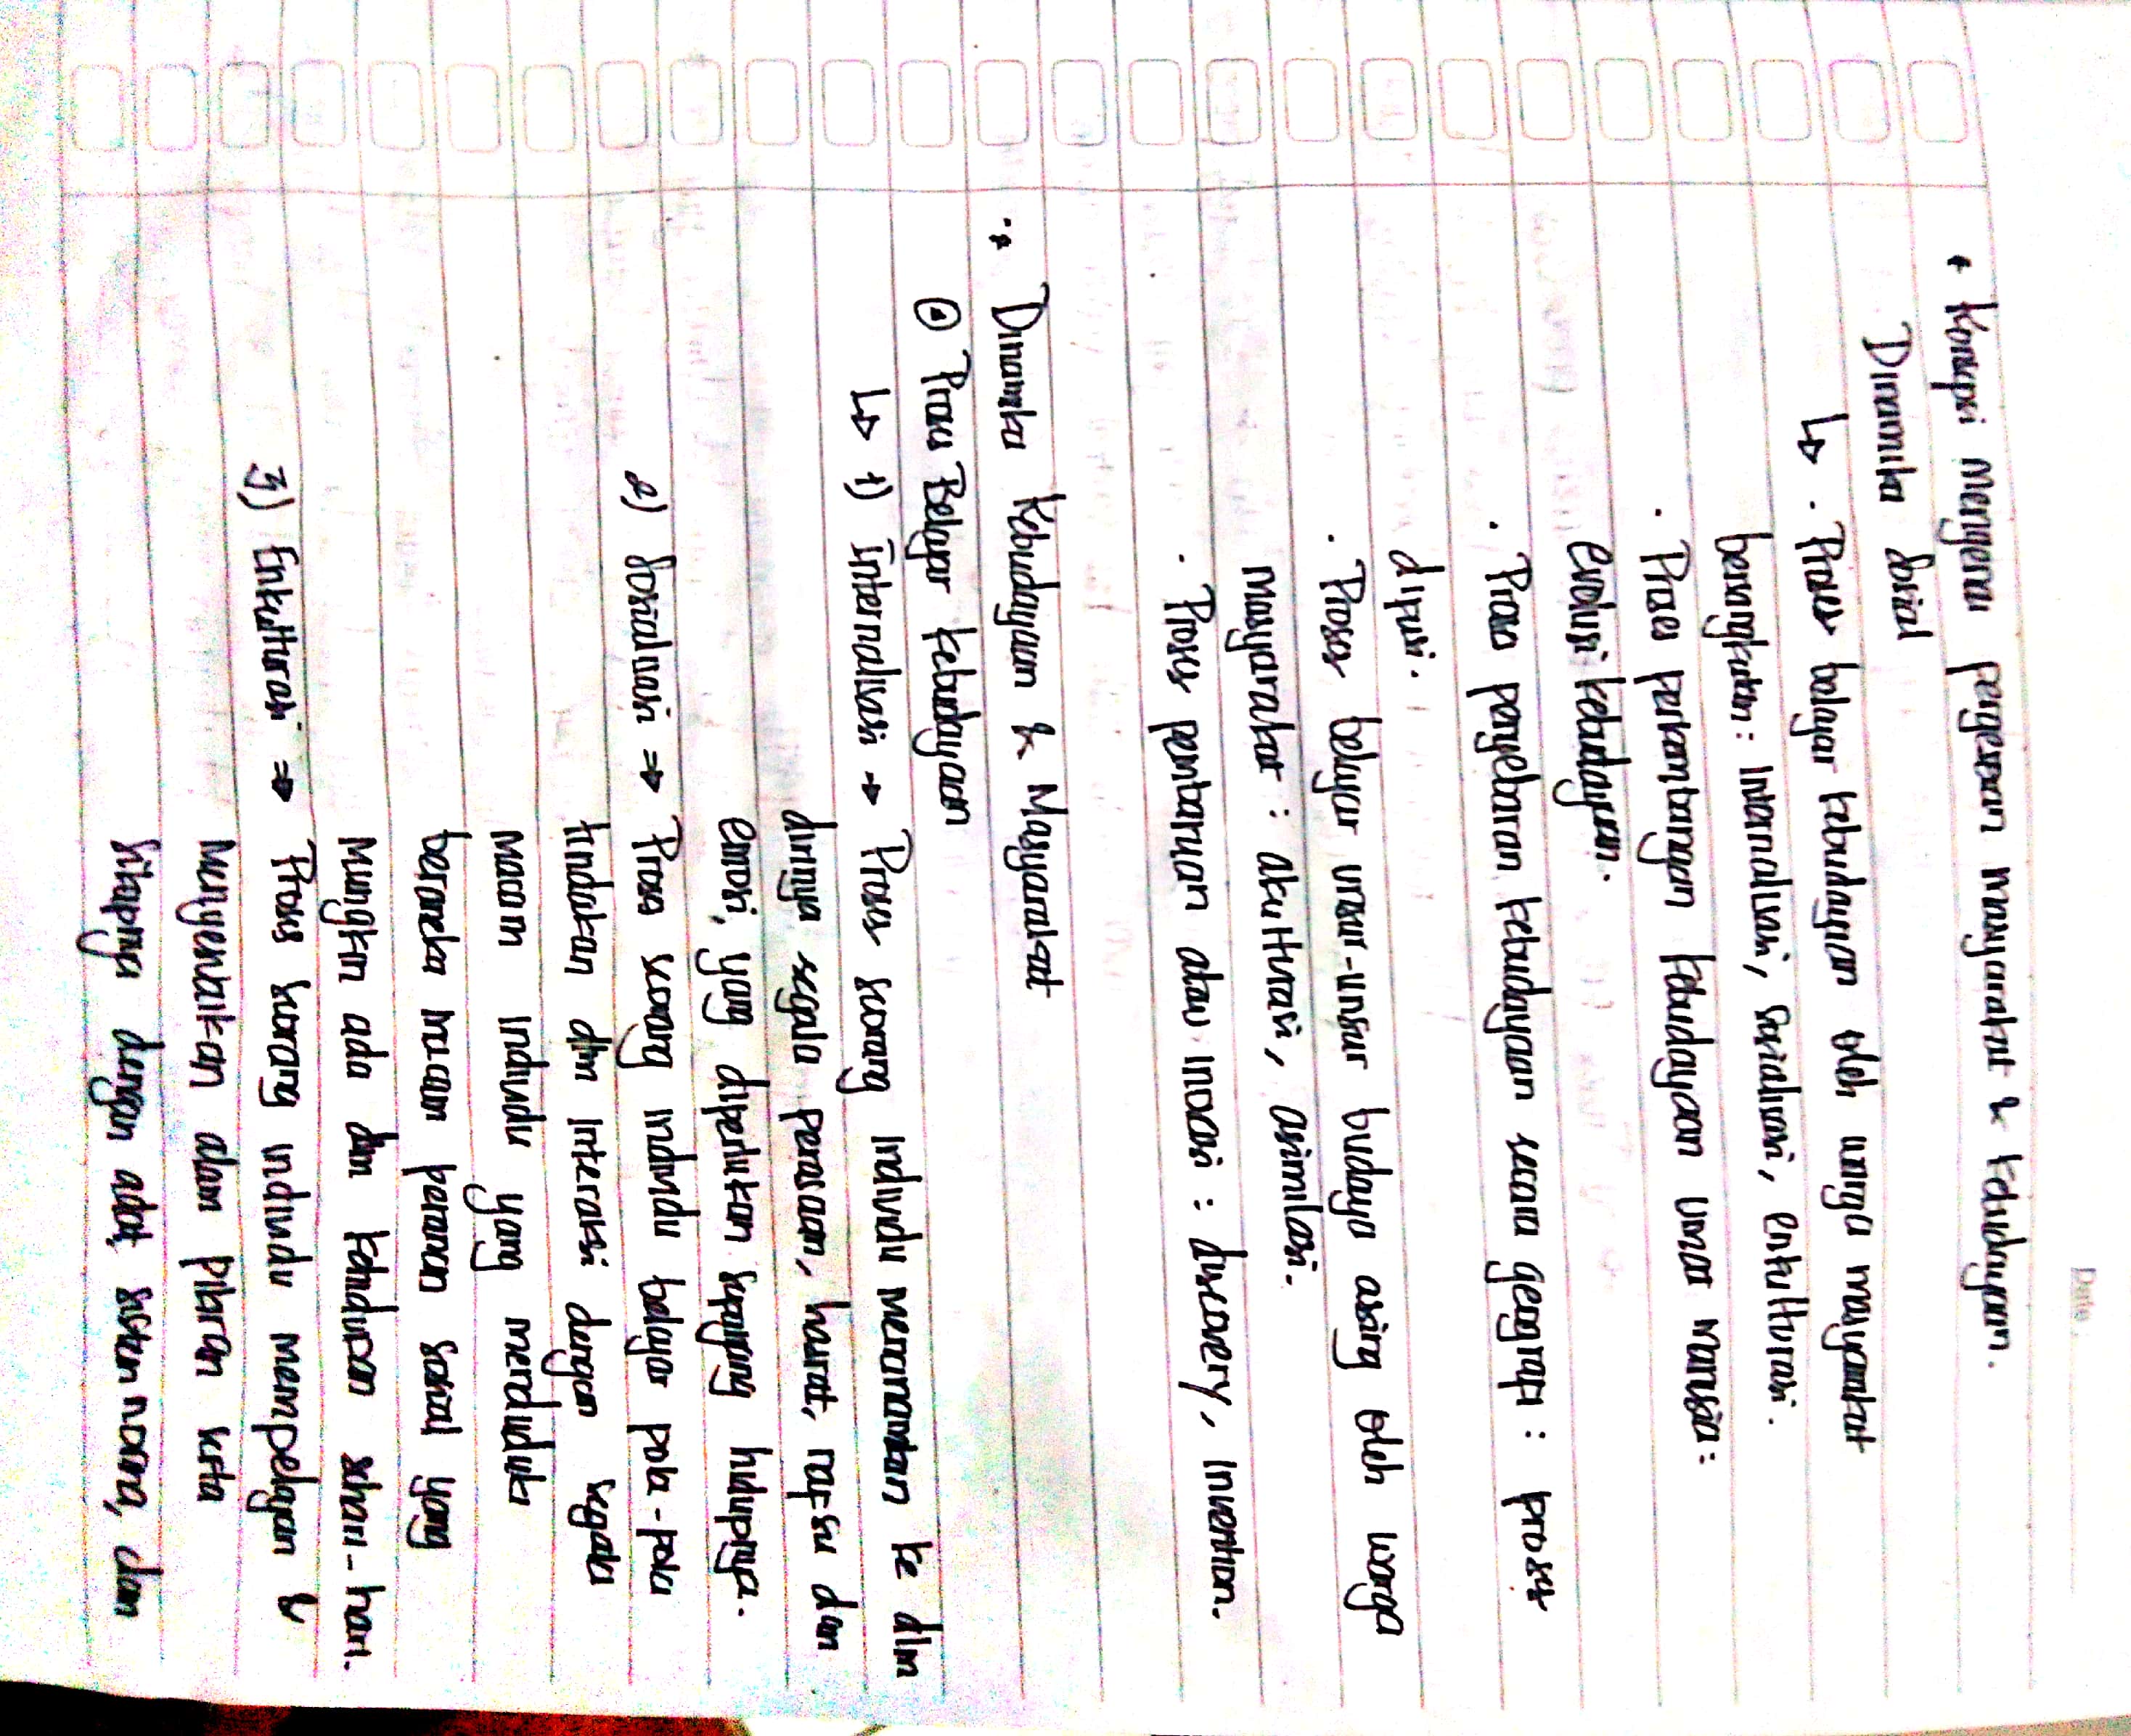 Date :
+ Konsepsi mengenai pergeseran masyarakat & kebudayaan.
Dinamika Sosial
↳ · Proses belajar kebudayaan oleh warga masyarakat
bersangkutan : internalisasi, sosialisasi, enkulturasi.
· Proses perkembangan kebudayaan umat manusia :
evolusi kebudayaan.
· Proses penyebaran kebudayaan secara geografi : proses
difusi.
· Proses belajar unsur-unsur budaya asing oleh warga
masyarakat : akulturasi, asimilasi.
· Proses pembaruan atau inovasi : discovery, invention.
Dinamika Kebudayaan & Masyarakat
⊙ Proses Belajar Kebudayaan
↳ 1) Internalisasi → Proses seorang individu menanamkan ke dlm
dirinya segala perasaan, hasrat, nafsu dan
emosi, yang diperlukan sepanjang hidupnya.
2) Sosialisasi ⇒ Proses seorang individu belajar pola-pola
tindakan dlm interaksi dengan segala
macam individu yang menduduki
beraneka macam peranan sosial yang
mungkin ada dlm kehidupan sehari-hari.
3) Enkulturasi ⇒ Proses seorang individu mempelajari &
menyesuaikan alam pikiran serta
sikapnya dengan adat, sistem norma, dan